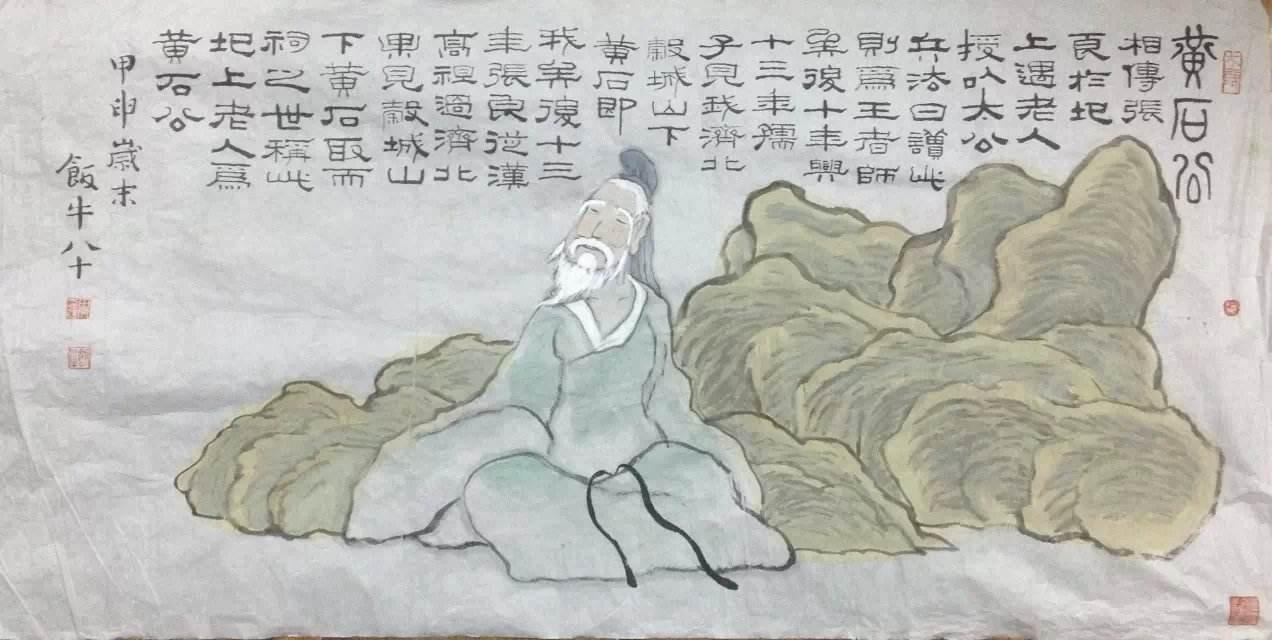 黄石公
相傳張
良於圯
上遇老人
授以太公
兵法曰讀此
則為王者師
矣後十年興
十三年孺
子見我濟北
穀城山下
黄石即
我矣後十三
年張良從漢
高祖過濟北
果見穀城山
下黄石取而
祠之世稱此
圯上老人為
黄石公
甲申歲末
飯牛八十